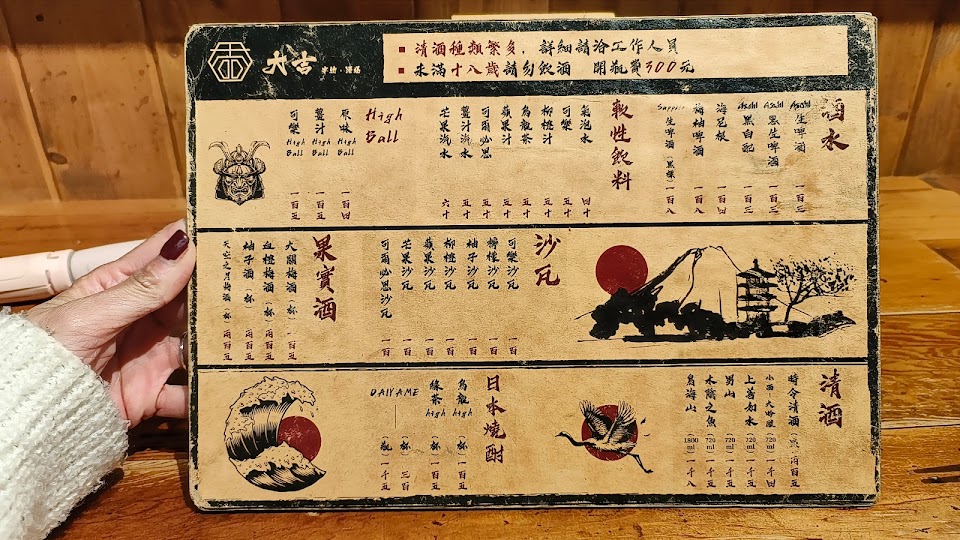 大吉
■ 清酒種類繁多,詳細請洽工作人員
■ 未滿十八歲請勿飲酒 開瓶費300元
酒水
Asahi 生啤酒 一百三
Asahi 黑生啤酒 一百三
Asahi 黑白配 一百三
海尼根 一百四
梅柚啤酒 一百八
Sapporo 生啤酒(黑標)一百八
軟性飲料
氣泡水 四十
可樂 五十
柳橙汁 五十
烏龍茶 五十
蘋果汁 五十
可爾必思 五十
薑汁汽水 五十
芒果汽水 六十
High Ball
原味 High Ball 一百四
薑汁 High Ball 一百五
可樂 High Ball 一百五
沙瓦
可樂沙瓦 一百
檸檬沙瓦 一百
柚子沙瓦 一百
柳橙沙瓦 一百
蘋果沙瓦 一百
芒果沙瓦 一百
可爾必思沙瓦 一百
果實酒
大關梅酒(杯)一百五
血橙梅酒(杯)兩百五
柚子酒(杯)兩百五
天空之月梅酒(杯)兩百五
清酒
時令清酒(壺)兩百五
小西大吟釀(720ml)一千四
上善如水(720ml)一千五
男山(720ml)一千五
水陰之魚(720ml)一千六
鳥海山(1800ml)一千八
日本燒酎
烏龍high(杯)一百五
綠茶high(杯)一百五
DAIYAME(杯)三百
(瓶)一千五